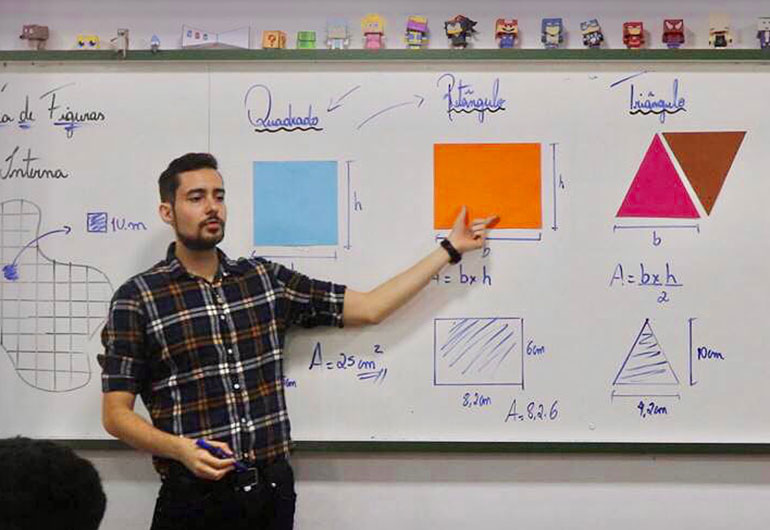 de Figuras
Interna
1u.m
Quadrado
h
A=25cm²
Retângulo
h
b
= b x h
6cm
8,2cm
A=8,2.6
Triângulo
b
A= b x h
2
10cm
4,2cm